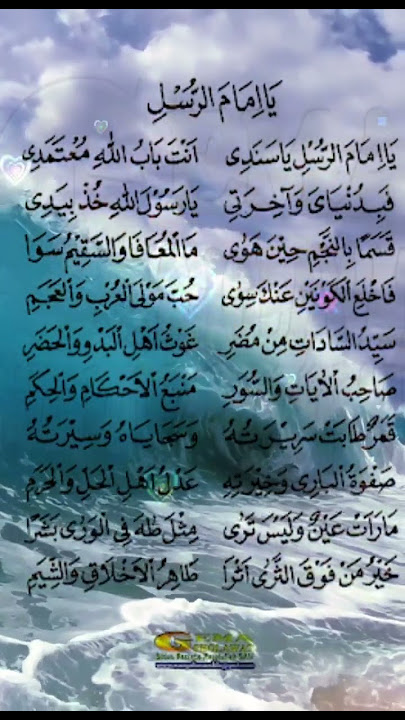 يَااِمَامَ الرُّسْلِ
يَااِمَامَ الرُّسْلِ يَاسَنَدِى اَنْتَ بَابُ اللهِ مُعْتَمَدِى
فَبِدُنْيَايَ وَآخِرَتِى يَارَسُوْلَ اللهِ خُذْ بِيَدِى
قَسَمًا بِالنَّجْمِ حِيْنَ هَوٰى مَاالْمُعَافَا وَالسَّقِيْمُ سَوَا
فَاخْلَعِ الْكَوْنَيْنِ عَنْكَ سِوٰى حُبَّ مَوْلَى الْعُرْبِ وَالْعَجَمِ
سَيِّدُ السَّادَاتِ مِنْ مُضَرِ غَوْثُ اَهْلِ الْبَدْوِ وَالْحَضَرِ
صَاحِبُ الْاٰيَاتِ وَالسُّوَرِ مَنْبَعُ الْاَحْكَامِ وَالْحِكَمِ
قَمَرٌ طَابَتْ سَرِيْرَتُهُ وَسَجَايَاهُ وَسِيْرَتُهُ
صَفْوَةُ الْبَارِى وَخِيْرَتِهِ عَدْلُ اَهْلِ الْحِلِّ وَالْحَرَمِ
مَارَاَتْ عَيْنٌ وَلَيْسَ تَرٰى مِثْلَ طٰهَ فِى الْوَرٰى بَشَرًا
خَيْرُ مَنْ فَوْقَ الثَّرٰى اَثَرًا طَاهِرُ الْاَخْلَاقِ وَالشِّيَمِ
GEMA
SHOLAWAT